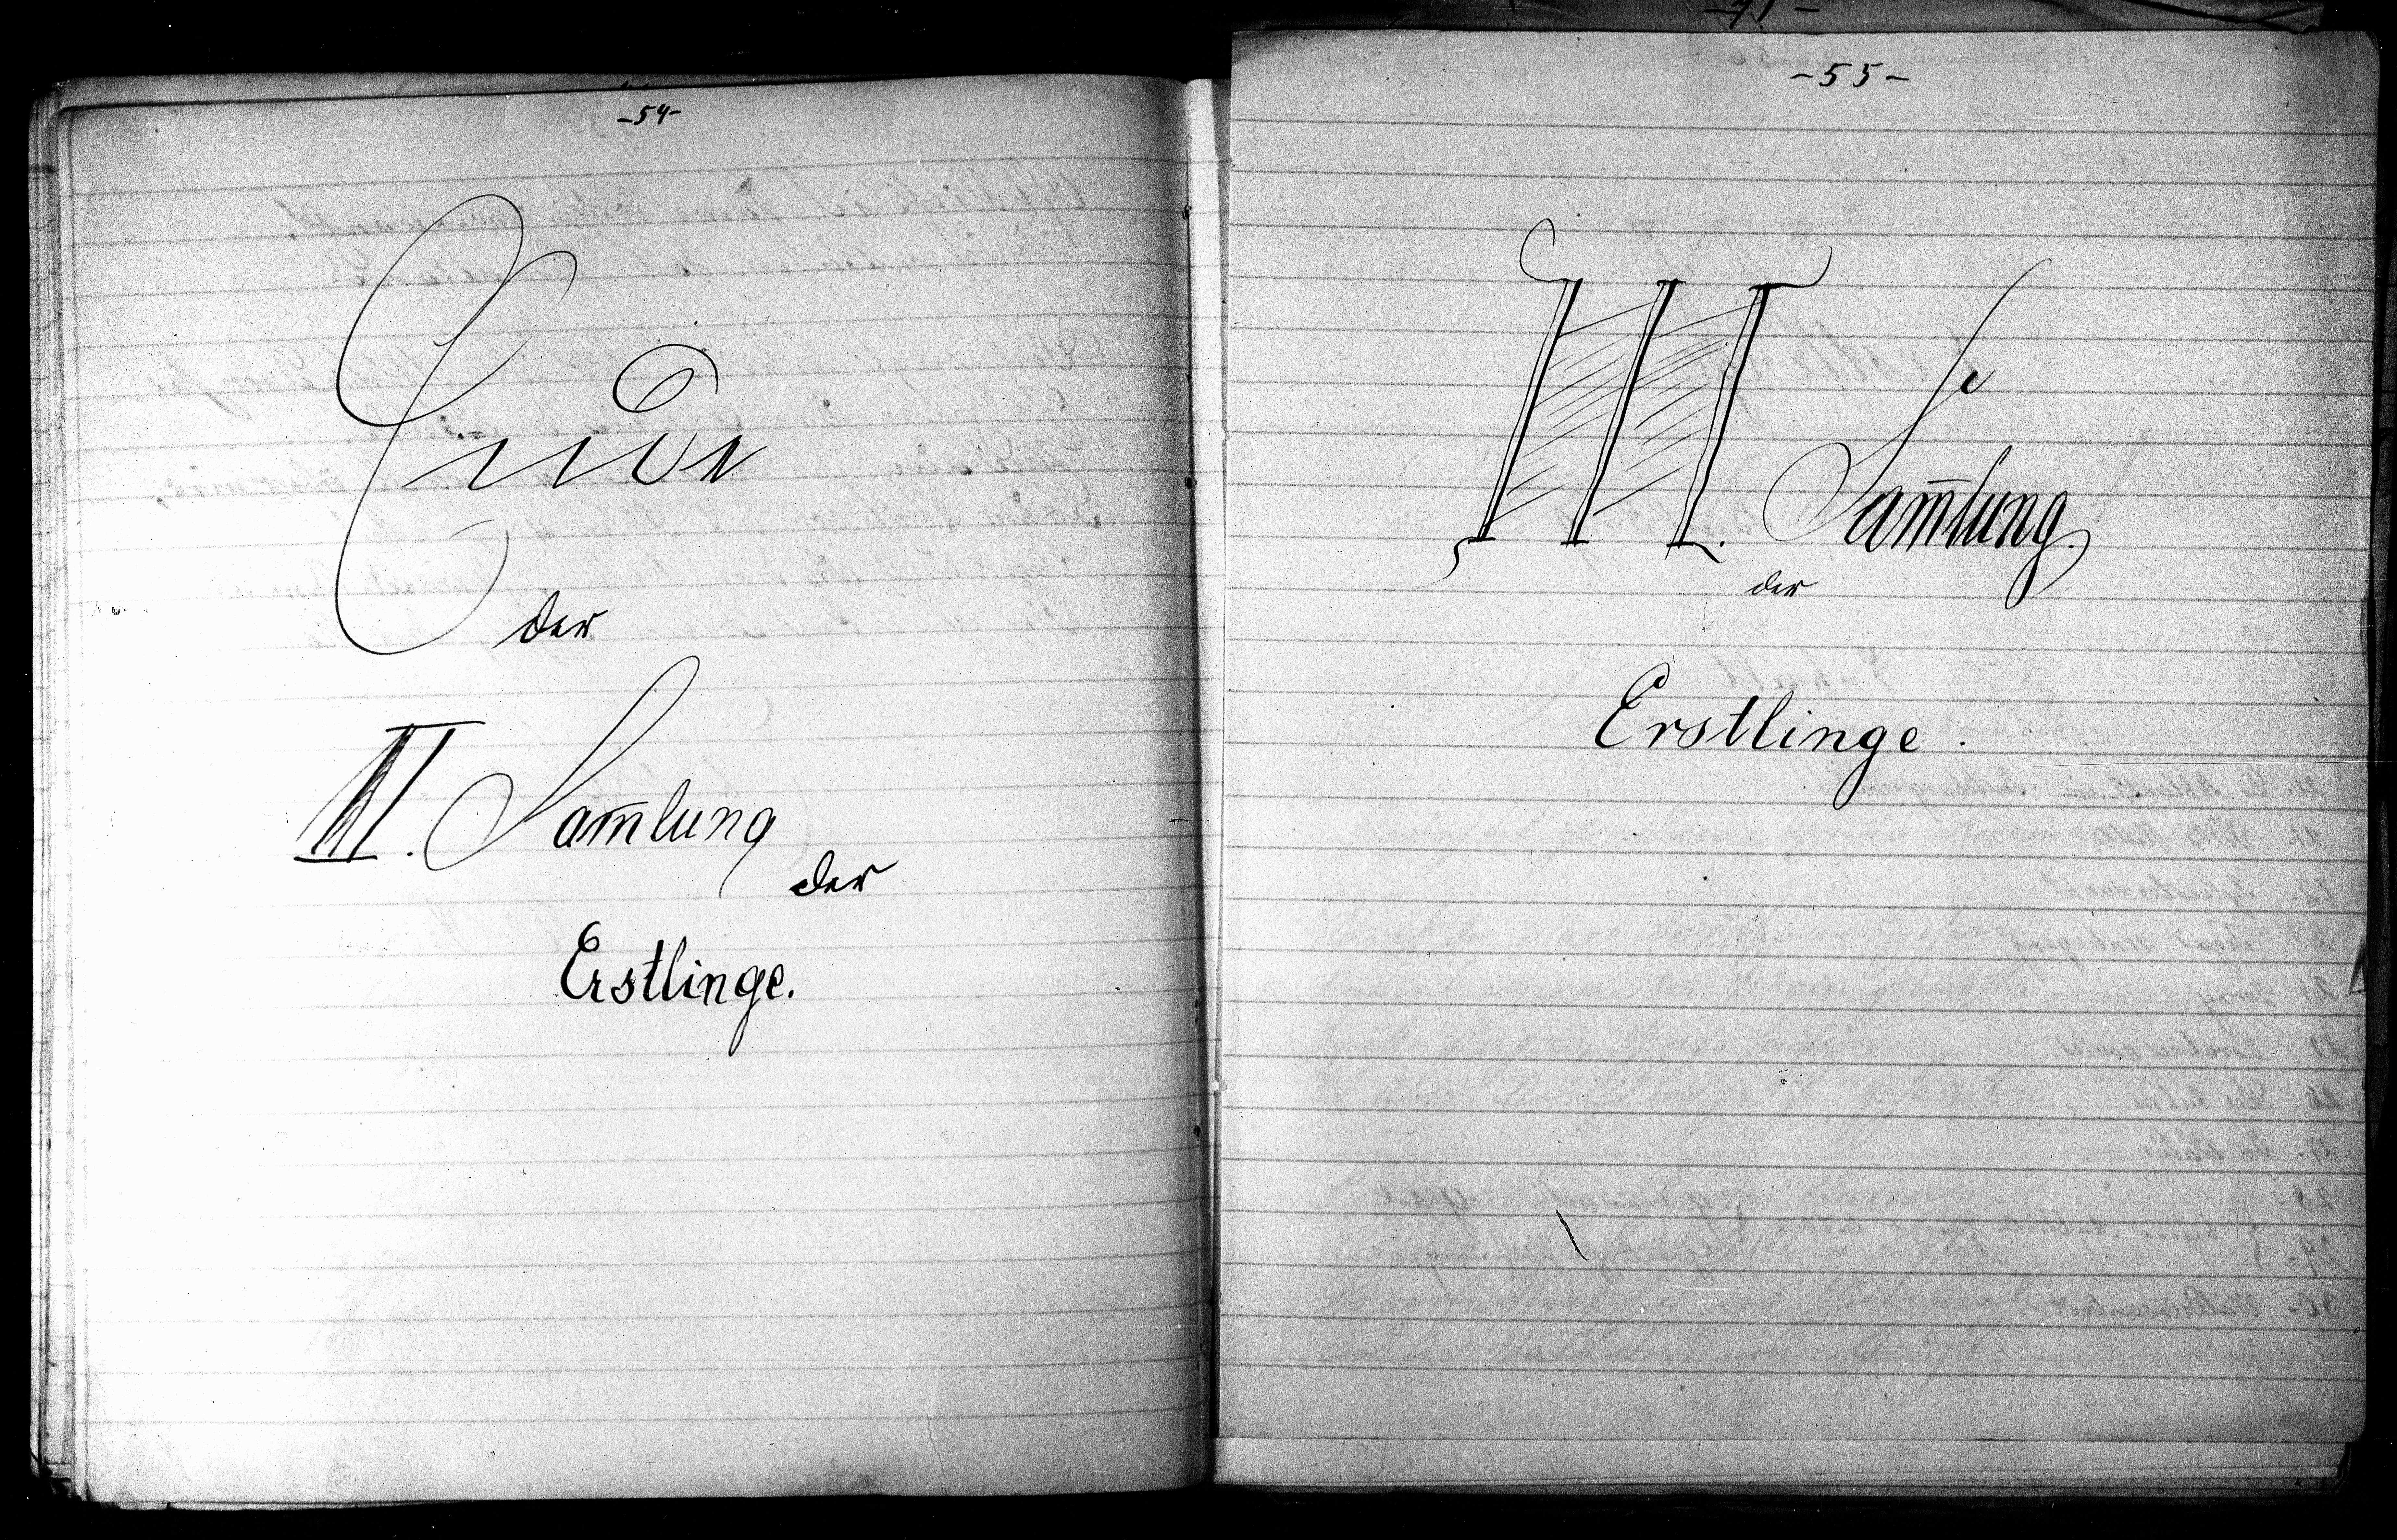 -54-
Ende
der
II. Sam̄lung
der
Erstlinge.
-55-
III. Sam̄lung.
der
Erstlinge.